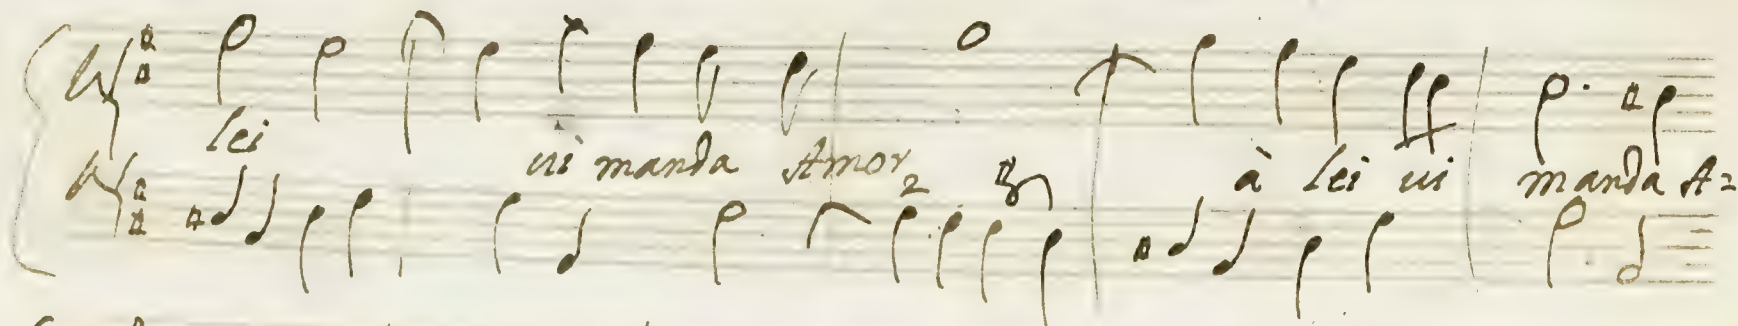 lei vi manda Amor à lei vi manda A=